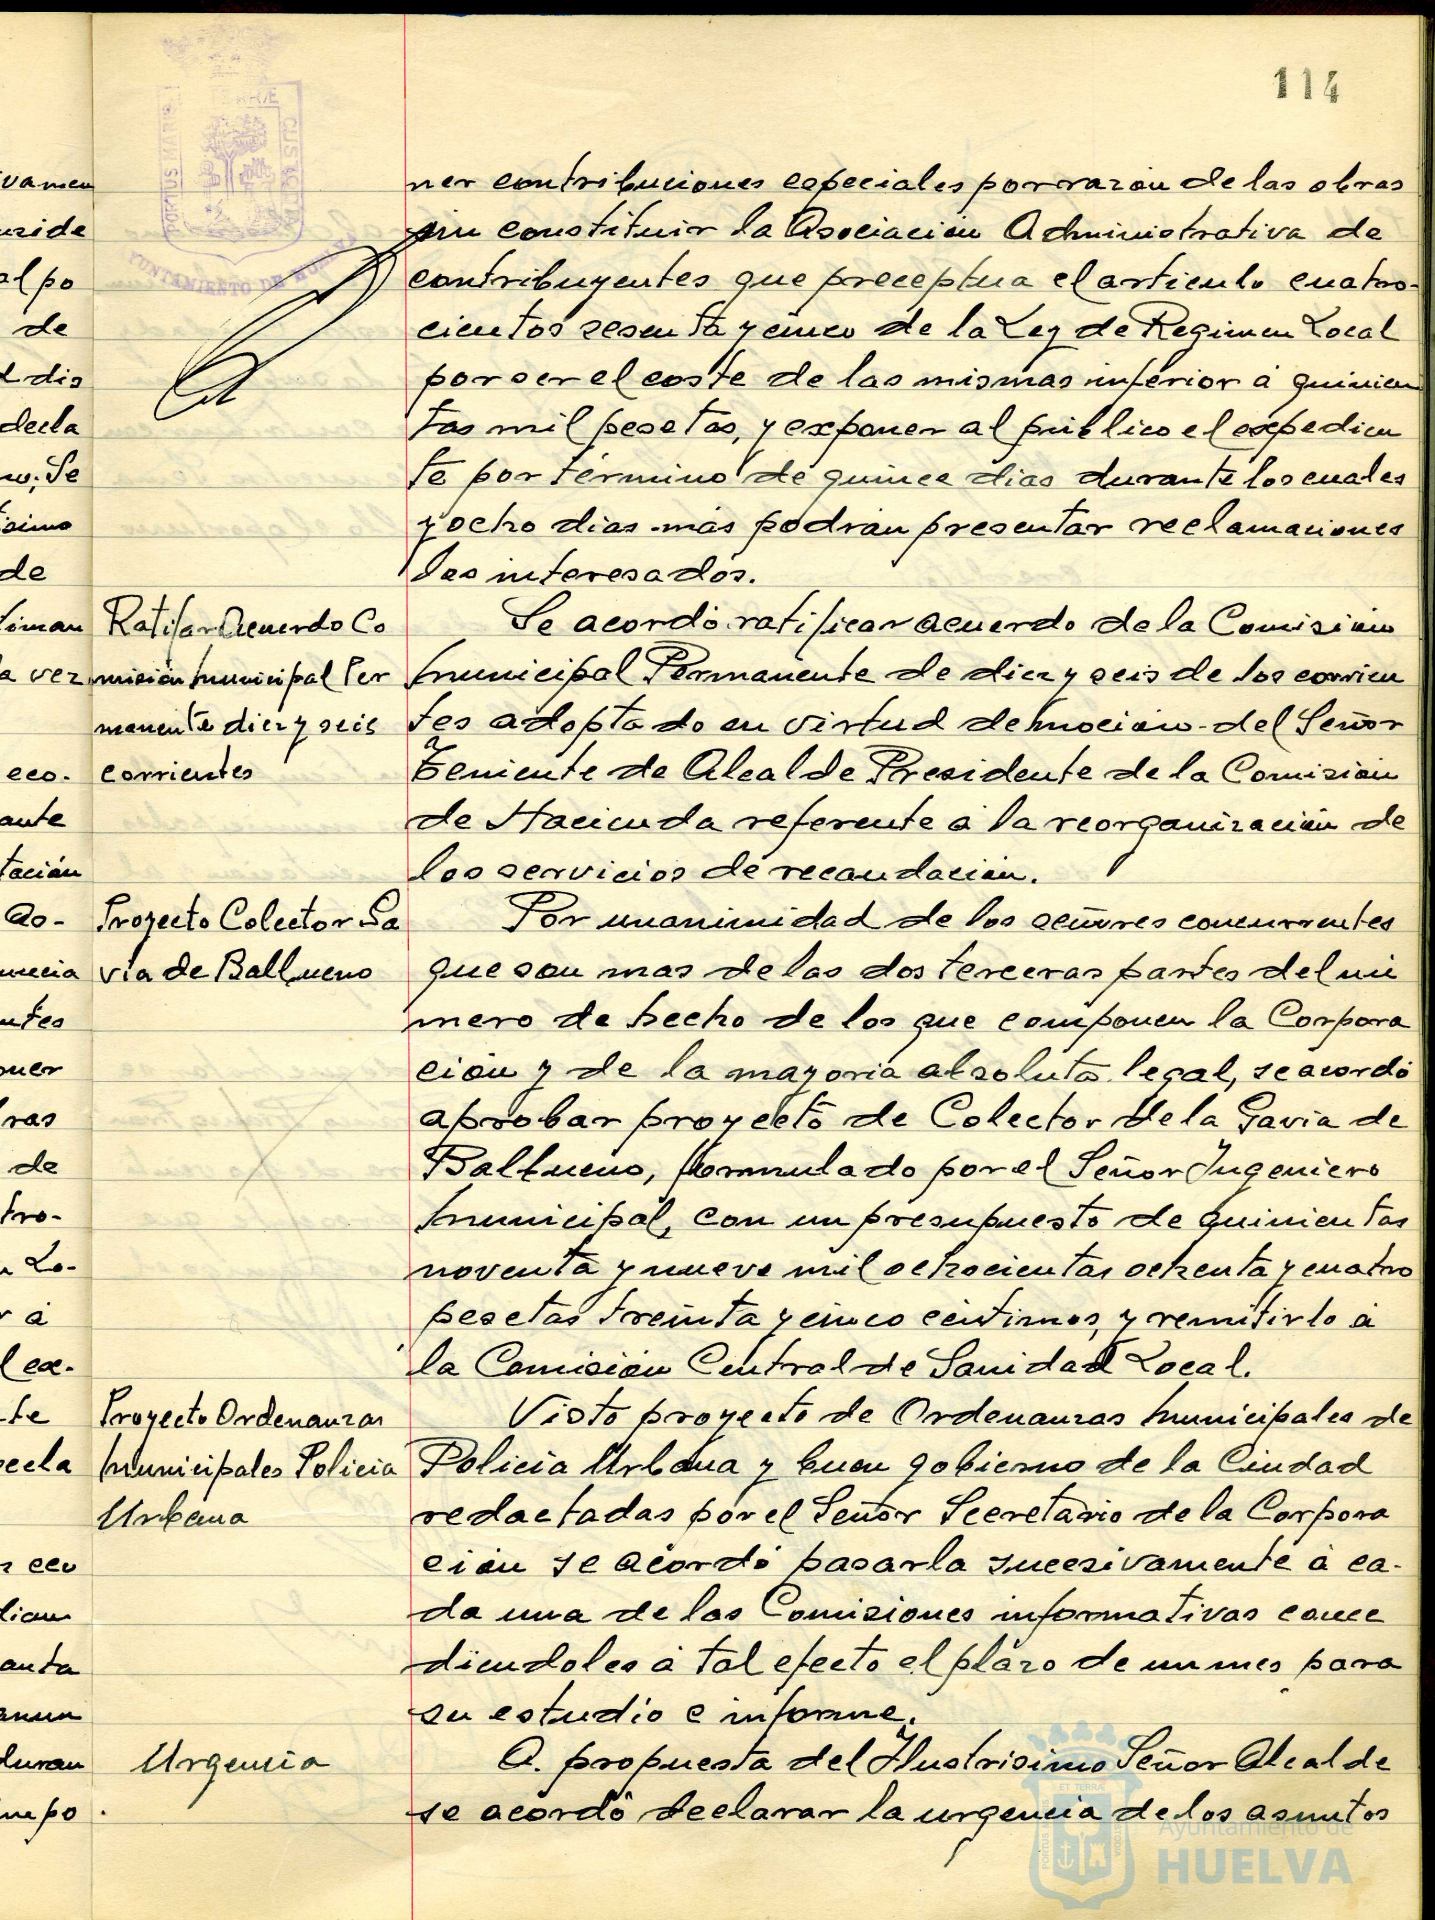 114
ner contribuciones especiales por razón de las obras
sin constituir la Asociación Administrativa de
contribuyentes que preceptua el articulo cuatro-
cientos sesenta y cinco de la Ley de Regimen Local
por ser el coste de las mismas inferior á quinien
tas mil pesetas, y exponer al público el expedien
te por término de quince dias durante los cuales
y ocho dias más podrán presentar reclamaciones
los interesados.
Ratifar Acuerdo Co
misión Municipal Per
manente diez y seis
corrientes
Se acordó ratificar acuerdo de la Comisión
Municipal Permanente de diez y seis de los corrien
tes adoptado en virtud de moción del Señor
Teniente de Alcalde Presidente de la Comisión
de Hacienda referente á la reorganización de
los servicios de recaudación.
Proyecto Colector Ga
via de Balbueno
Por unanimidad de los señores concurrentes
que son mas de las dos terceras partes del nú
mero de hecho de los que componen la Corpora
ción y de la mayoria absoluta legal, se acordó
aprobar proyecto de Colector de la Gavia de
Balbueno, formulado por el Señor Ingeniero
Municipal, con un presupuesto de quinientas
noventa y nueve mil ochocientas ochenta y cuatro
pesetas treinta y cinco céntimos, y remitirlo á
la Comisión Central de Sanidad Local.
Proyecto Ordenanzas
Municipales Policia
Urbana
Visto proyecto de Ordenanzas Municipales de
Policia Urbana y buen gobierno de la Ciudad
redactadas por el Señor Secretario de la Corpora
ción se acordó pasarla sucesivamente á ca-
da una de las Comisiones informativas conce
diendoles á tal efecto el plazo de un mes para
su estudio e informe.
Urgencia
A propuesta del Ilustrisimo Señor Alcalde
se acordó declarar la urgencia de los asuntos
vamen
al po
de
dis
decla
Se
de
a vez
eco-
ante
tación
Ao-
ntes
oner
bras
de
tro-
Lo-
r á
l ex-
te
anta
duran
PORTUS MARIS ET TERRÆ CUSTODIA
AYUNTAMIENTO DE HUELVA
ET TERRÆ
Ayuntamiento de
HUELVA